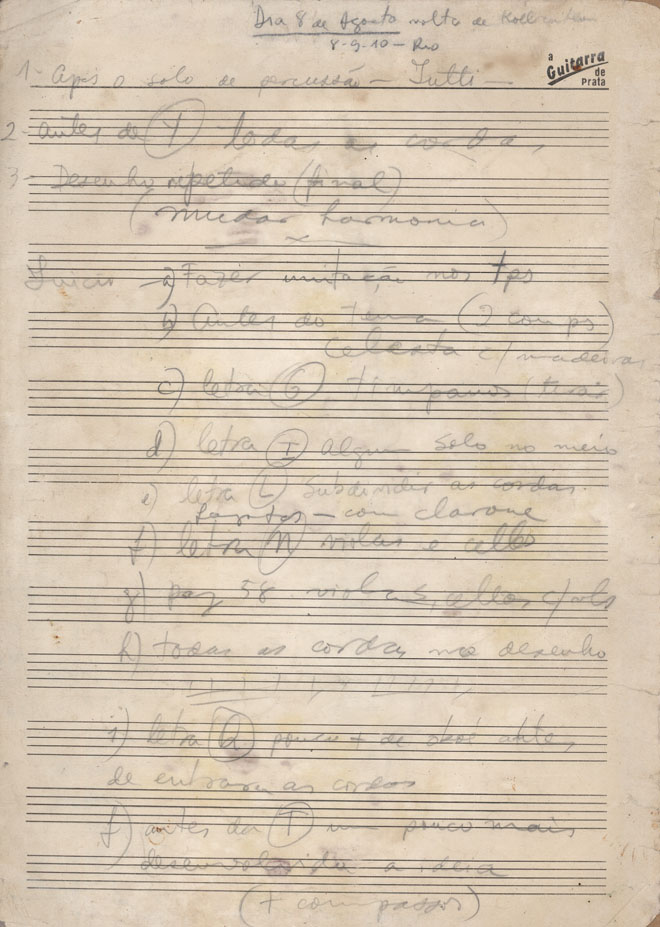 Dia 8 de Agosto volta de
8-9-10 - Rio
a Guitarra de Prata
1 - Após o solo de percussão - Tutti -
2 - antes de T todas as cordas
3 - Desenho repetido (final)
(mudar harmonia)
Início - a) Fazer imitação nos tps
b) Antes do tema (2 comps)
celesta c/ madeiras
c) letra G, timpanos (tirar)
d) letra I algum solo no meio
e) letra L subdividir as cordas.
Fagotes - com clarone
f) letra N violas e cellos
g) pag 58 violas, cellos c/ vls
h) todas as cordas no desenho
i) letra Q pouco + de oboé antes
de entrar as cordas
j) antes da T um pouco mais
desenvolvida a idéia
(+ compassos)